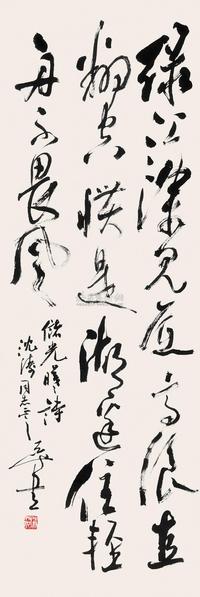 綠江深見底高浪直
翻空慣是湖邊住輕
舟不畏風
儲光羲詩
同志